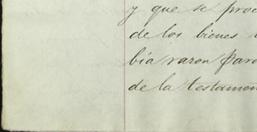 y que se proc
de los bienes
bía razon para
de la testamen